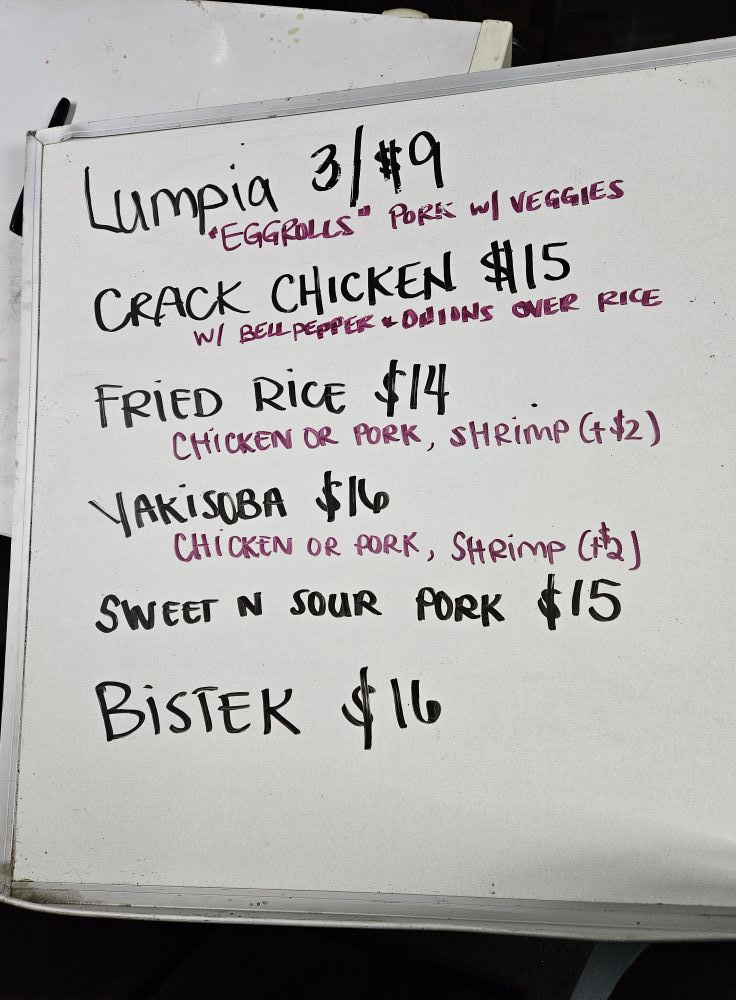 Lumpia 3/$9
"EGGROLLS" PORK W/ VEGGIES
CRACK CHICKEN $15
W/ BELLPEPPER & ONIONS OVER RICE
FRiED RiCE $14
CHiCKEN OR PORK, SHRimP (+$2)
YAKiSOBA $16
CHiCKEN OR PORK, SHRimP (+$2)
SWEET N SOUR PORK $15
BiSTEK $16